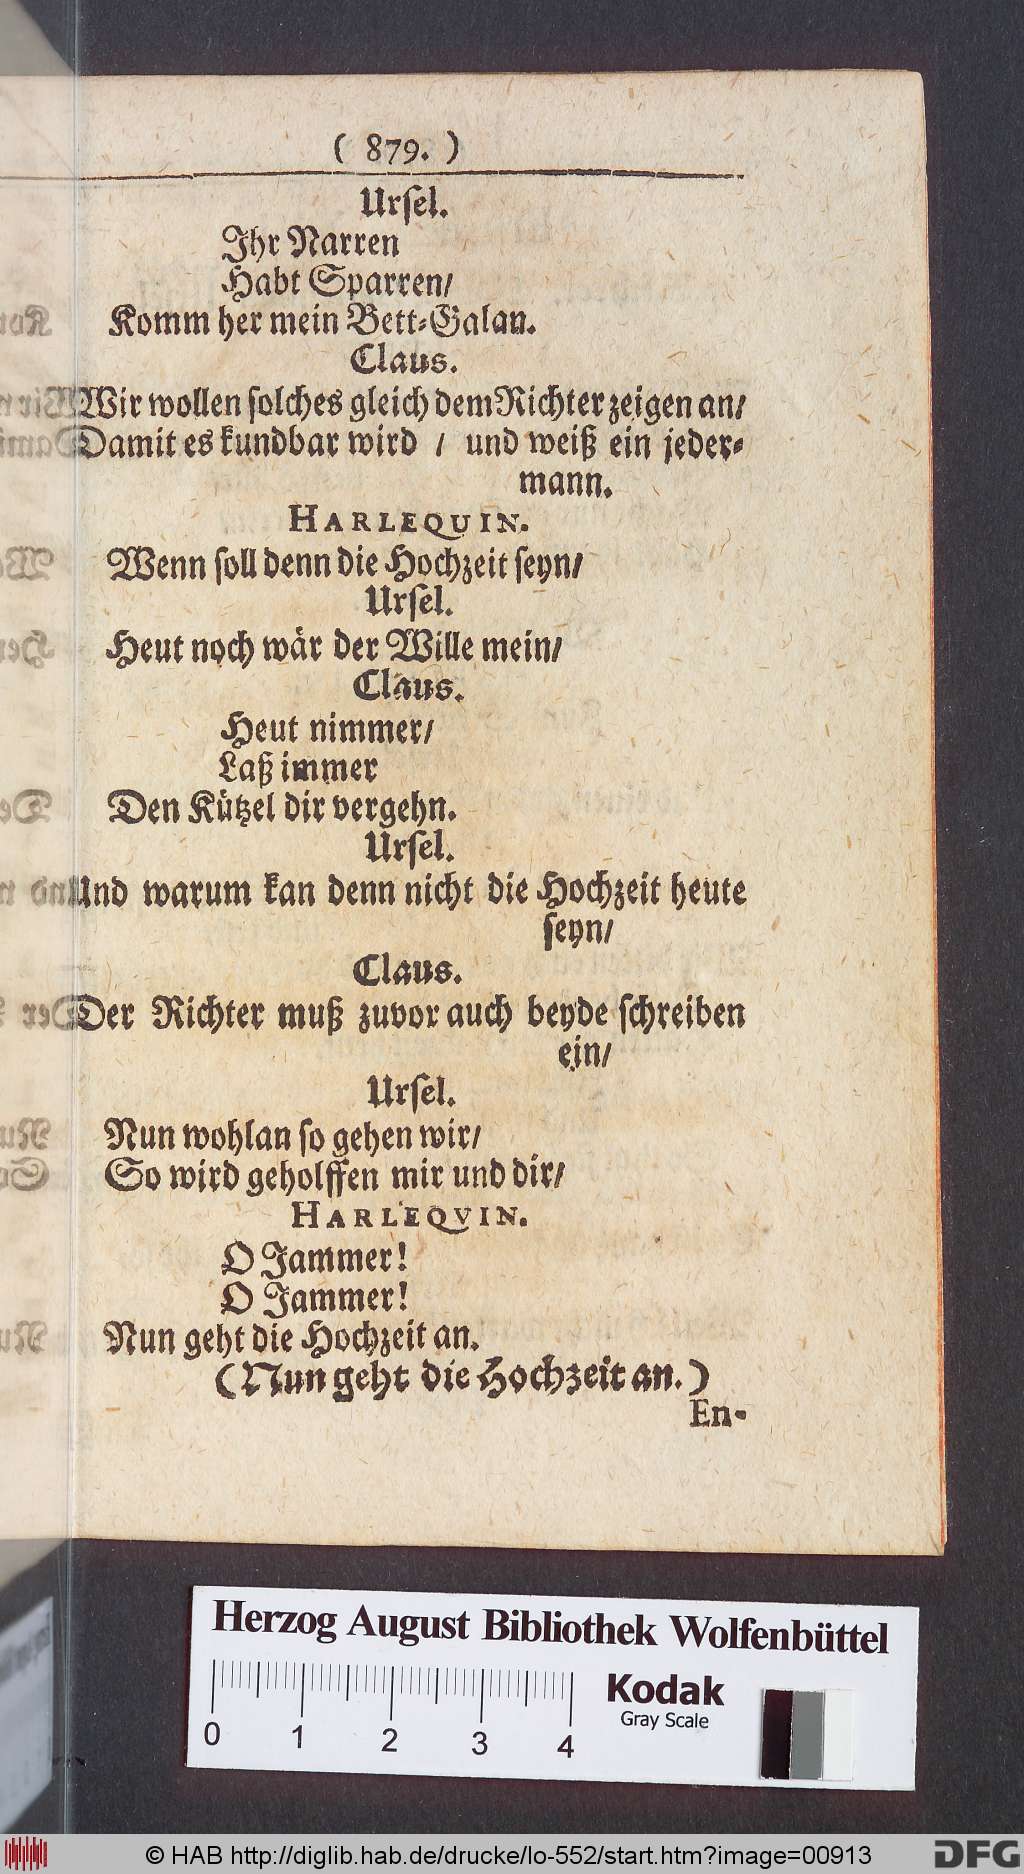 ( 879. )
Urſel.
Ihr Narren
Habt Sparren/
Komm her mein Bett-Galan.
Claus.
Wir wollen ſolches gleich dem Richter zeigen an/
Damit es kundbar wird / und weiß ein jeder-
mann.
HARLEQUIN.
Wenn ſoll denn die Hochzeit ſeyn/
Urſel.
Heut noch wär der Wille mein/
Claus.
Heut nimmer/
Laß immer
Den Kützel dir vergehn.
Urſel.
Und warum kan denn nicht die Hochzeit heute
ſeyn/
Claus.
Der Richter muß zuvor auch beyde ſchreiben
ein/
Urſel.
Nun wohlan ſo gehen wir/
So wird geholffen mir und dir/
HARLEQVIN.
O Jammer!
O Jammer!
Nun geht die Hochzeit an.
(Nun geht die Hochzeit an.)
En-
Herzog August Bibliothek Wolfenbüttel
Kodak
Gray Scale
0 1 2 3 4
© HAB http://diglib.hab.de/drucke/lo-552/start.htm?image=00913
DFG